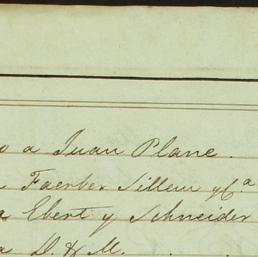 o a Juan Plane.
a Faerber Sillem y Cª
a Ebert y Schneider
a D. & M. . .